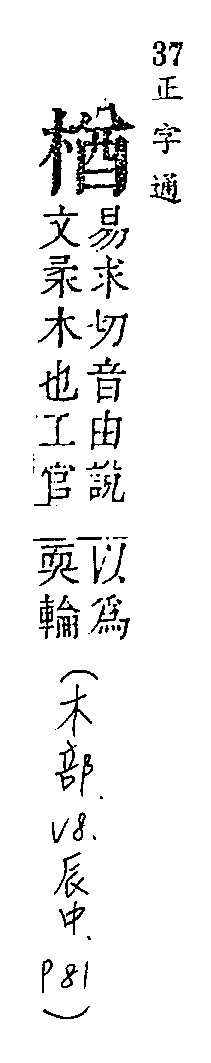 37 正字通
楢
易求切音由說
文柔木也工官
以爲
耎輪
(木部. V8. 辰中. P81)